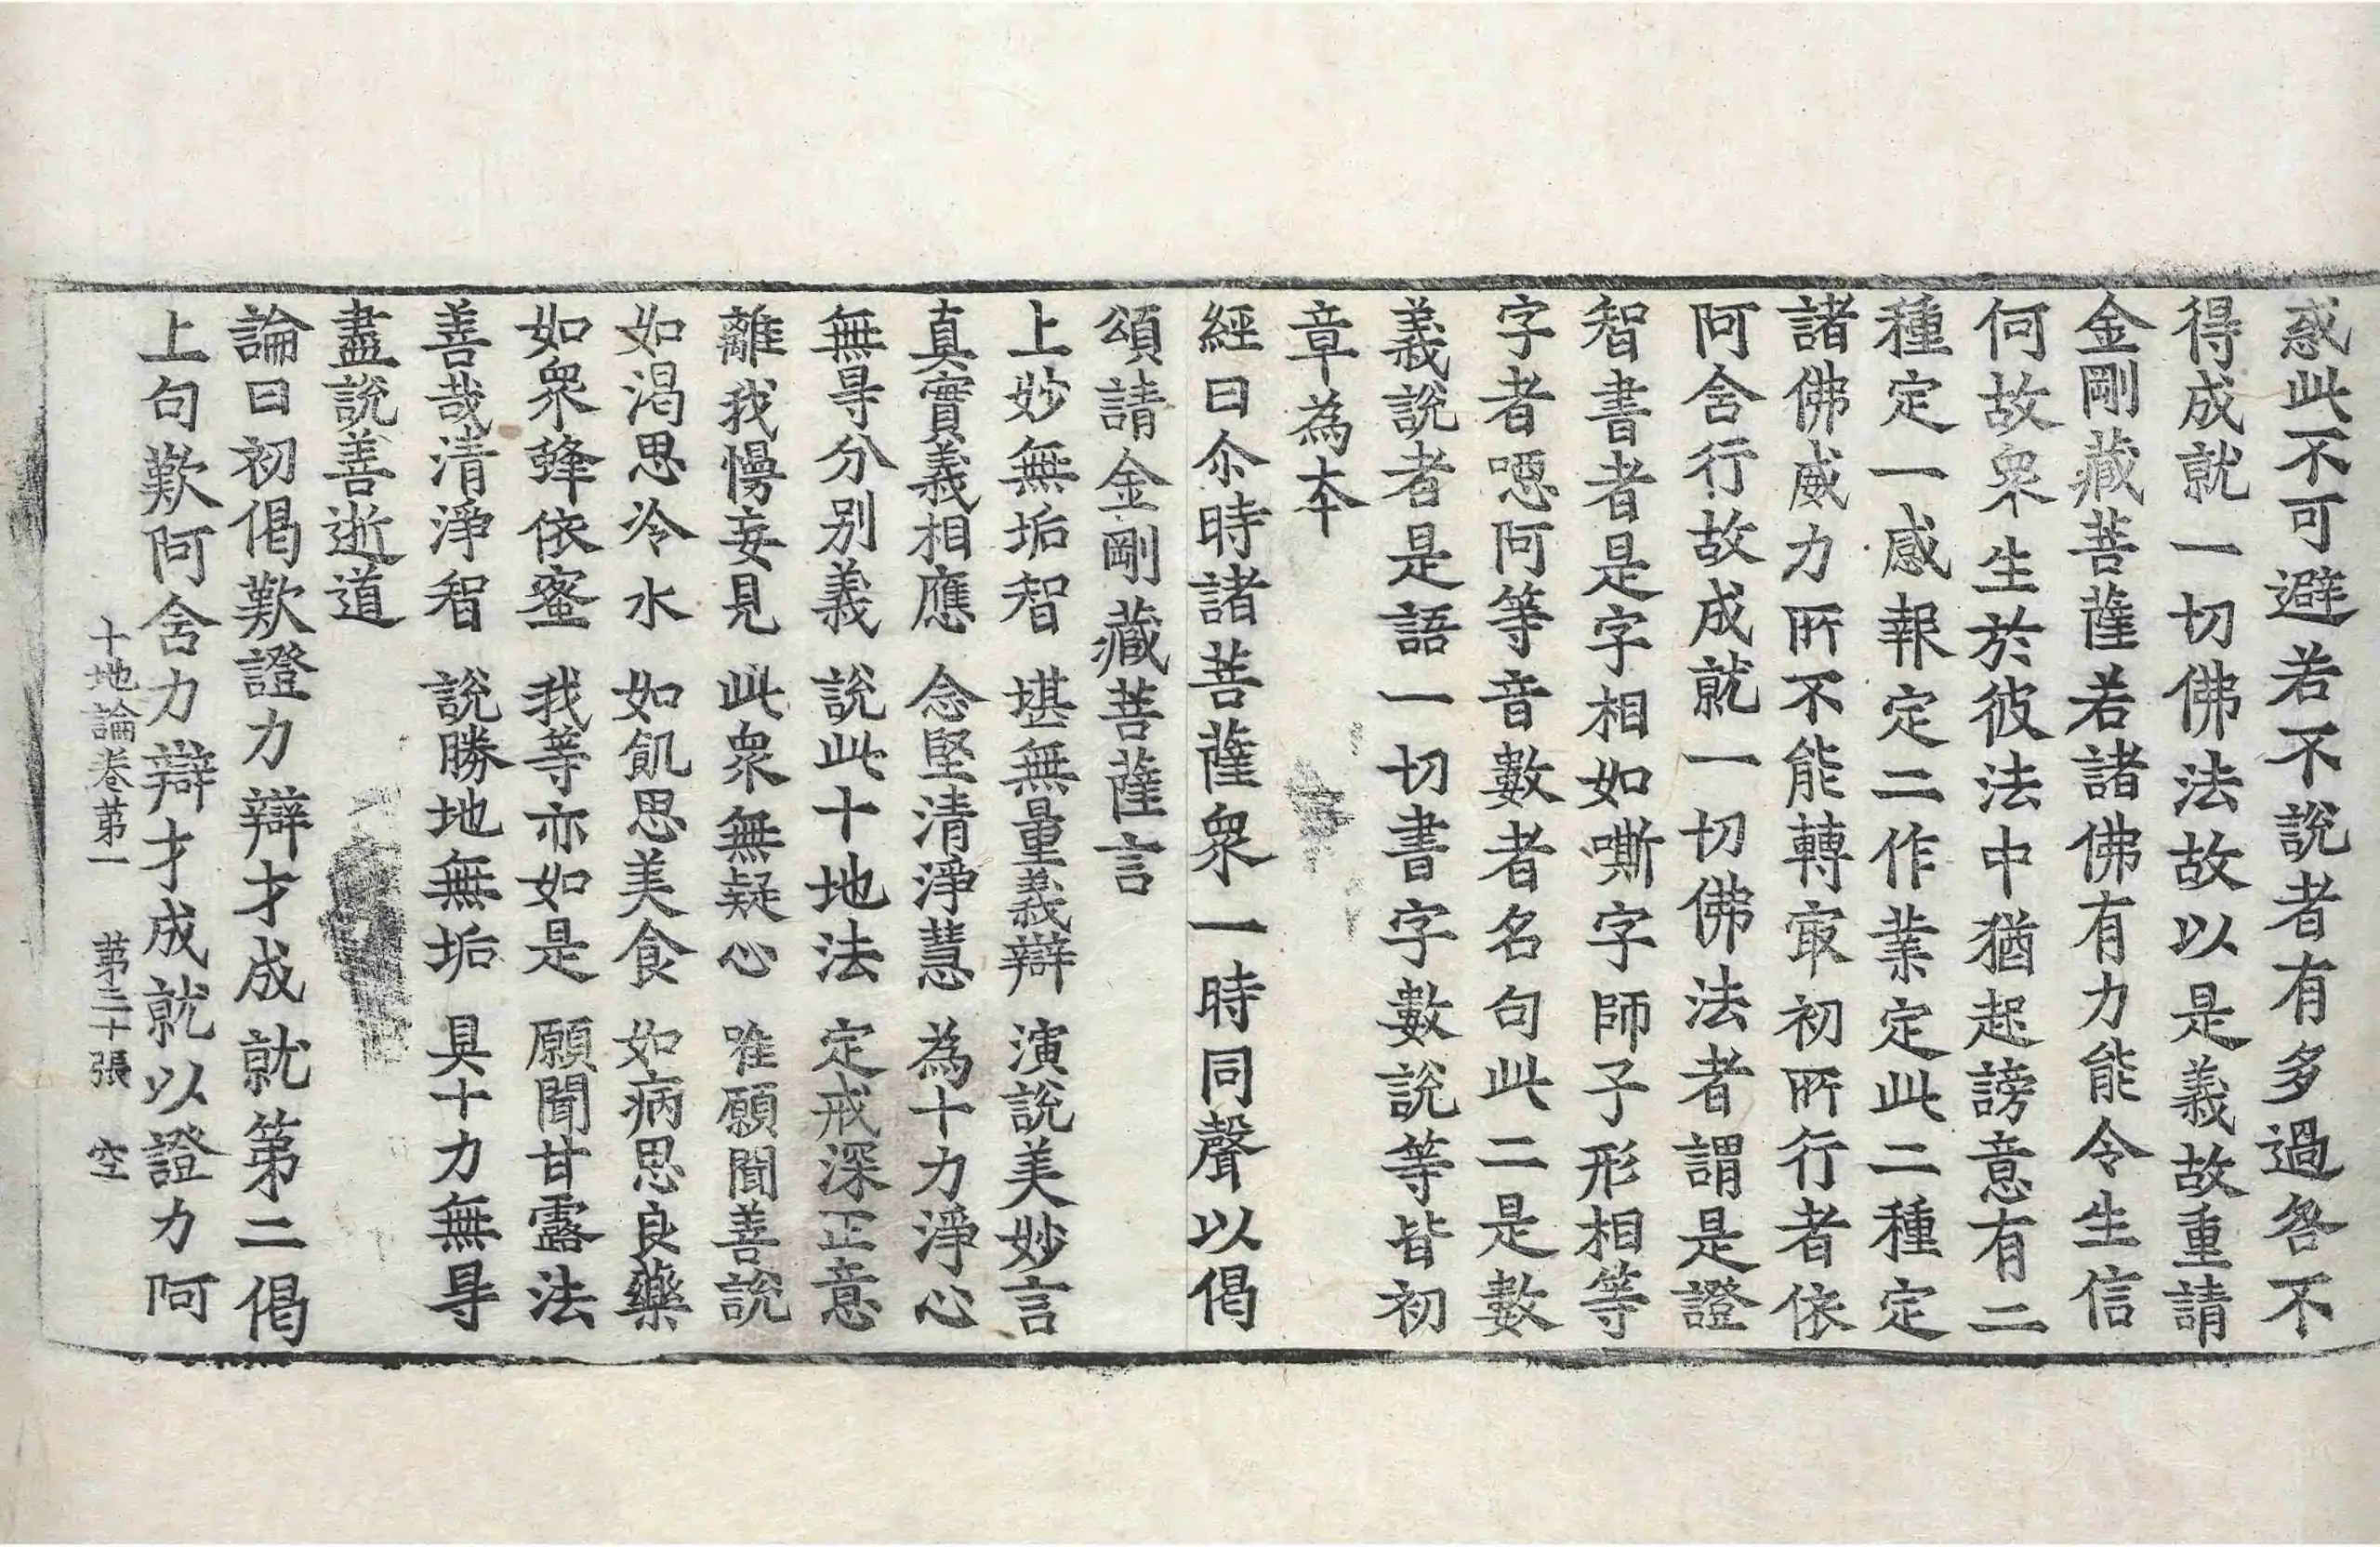 惑此不可避若不說者有多過咎不
得成就一切佛法故以是義故重請
金剛藏菩薩若諸佛有力能令生信
何故衆生於彼法中猶起謗意有二
種定一感報定二作業定此二種定
諸佛威力所不能轉冣初所行者依
阿含行故成就一切佛法者謂是證
智書者是字相如嘶字師子形相等
字者噁阿等音數者名句此二是數
義說者是語一切書字數說等皆初
章為本
經曰尒時諸菩薩衆一時同聲以偈
頌請金剛藏菩薩言
上妙無垢智 堪無量義辯 演說美妙言
真實義相應 念堅清淨慧 為十力淨心
無㝵分別義 說此十地法 定戒深正意
離我慢妄見 此衆無疑心 唯願聞善說
如渴思冷水 如飢思美食 如病思良藥
如衆蜂依蜜 我等亦如是 願聞甘露法
善哉清淨智 說勝地無垢 具十力無㝵
盡說善逝道
論曰初偈歎證力辯才成就第二偈
上句歎阿含力辯才成就以證力阿
十地論卷第一 第三十張 空